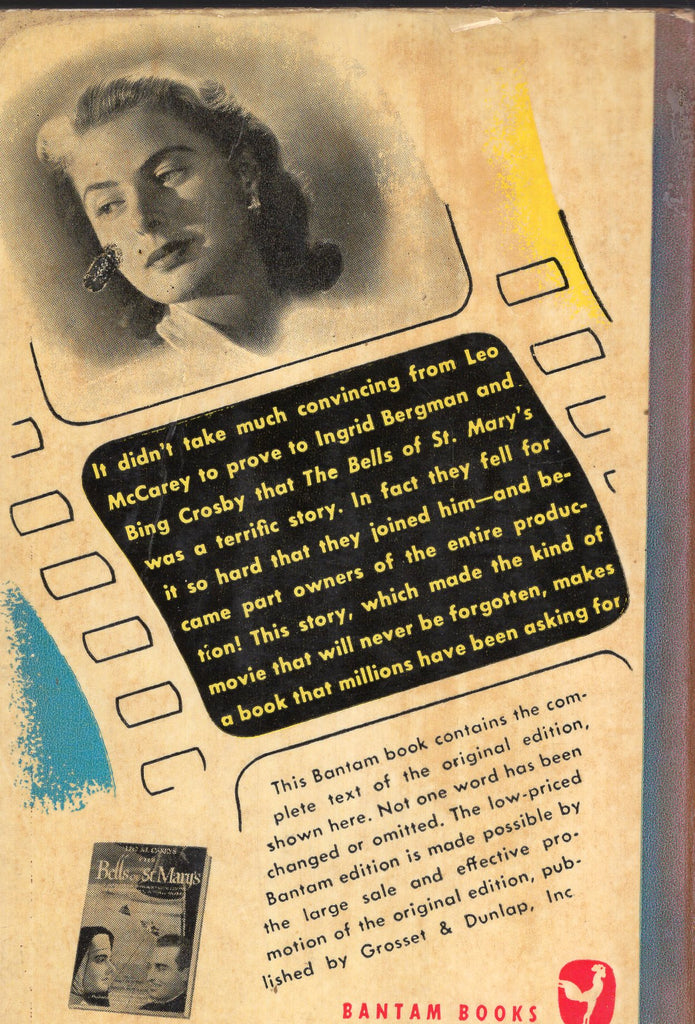 It didn't take much convincing from Leo
McCarey to prove to Ingrid Bergman and
Bing Crosby that The Bells of St. Mary's
was a terrific story. In fact they fell for
it so hard that they joined him—and be-
came part owners of the entire produc-
tion! This story, which made the kind of
movie that will never be forgotten, makes
a book that millions have been asking for
This Bantam book contains the com-
plete text of the original edition,
shown here. Not one word has been
changed or omitted. The low-priced
Bantam edition is made possible by
the large sale and effective pro-
motion of the original edition, pub-
lished by Grosset & Dunlap, Inc
Bells St Mary's
BANTAM BOOKS